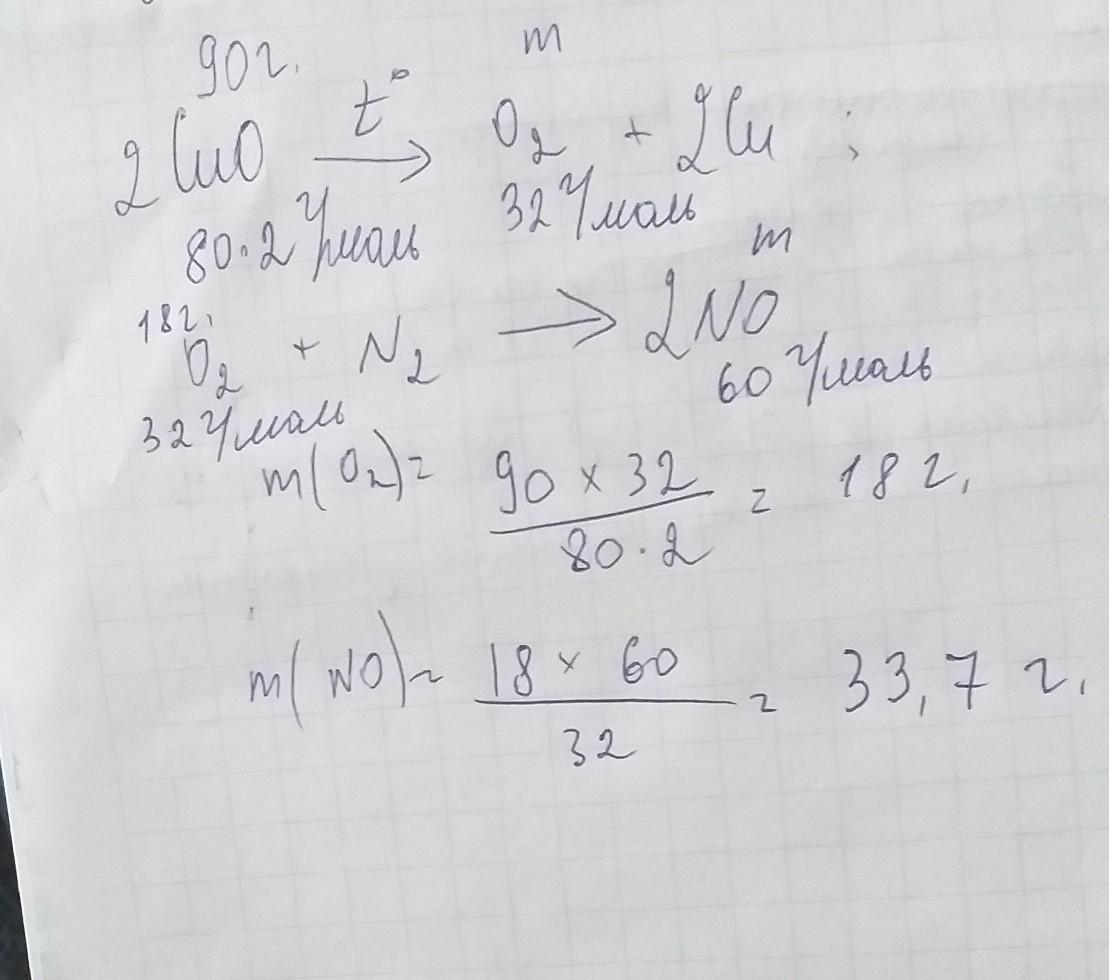 90г. m
2CuO t° → O₂ + 2Cu ;
80·2 г/моль 32 г/моль
18г. m
O₂ + N₂ → 2NO
32 г/моль 60 г/моль
m(O₂)= 90 x 32 / 80·2 = 18 г.
m(NO)= 18 x 60 / 32 = 33,7 г.